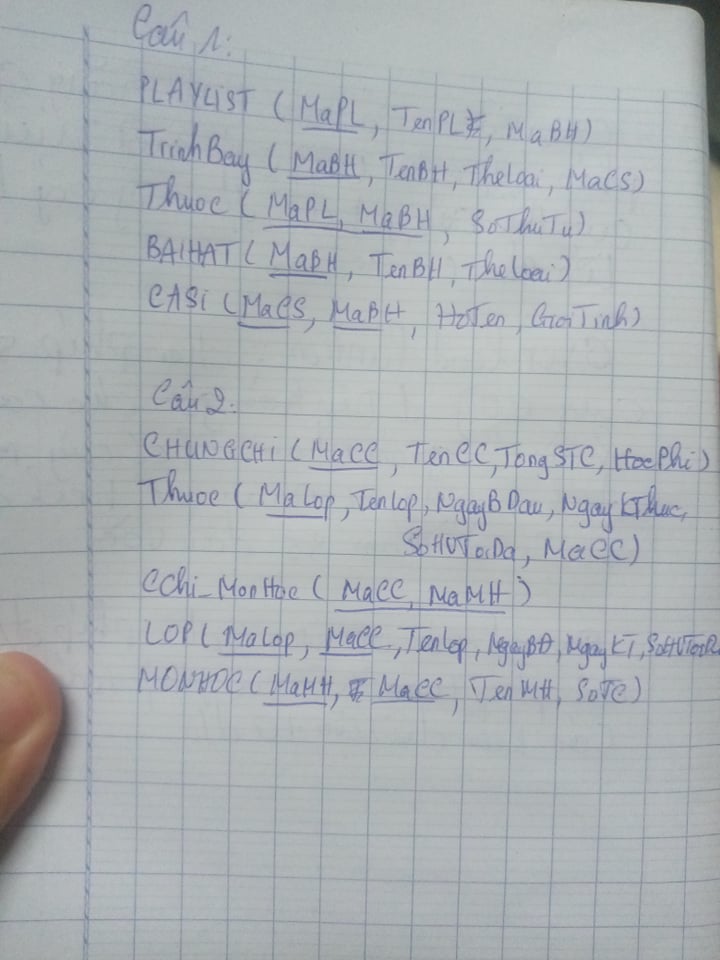 Câu 1:
PLAYLIST (MaPL, TenPL, MaBH)
TrinhBay (MaBH, TenBH, TheLoai, MaCS)
Thuoc (MaPL, MaBH, SoThuTu)
BAIHAT (MaBH, TenBH, TheLoai)
CASi (MaCS, MaBH, HoTen, GioiTinh)
Câu 2.
CHUNGCHi (MaCC, TenCC, TongSTC, HocPhi)
Thuoc (MaLop, TenLop, NgayBDau, NgayKThuc,
SoHVToiDa, MaCC)
CChi_MonHoc (MaCC, MaMH)
LOP (MaLop, MaCC, TenLop, NgayBĐ, NgayKT, SoHVToiDa
MONHOC (MaMH, MaCC, TenMH, SoTC)